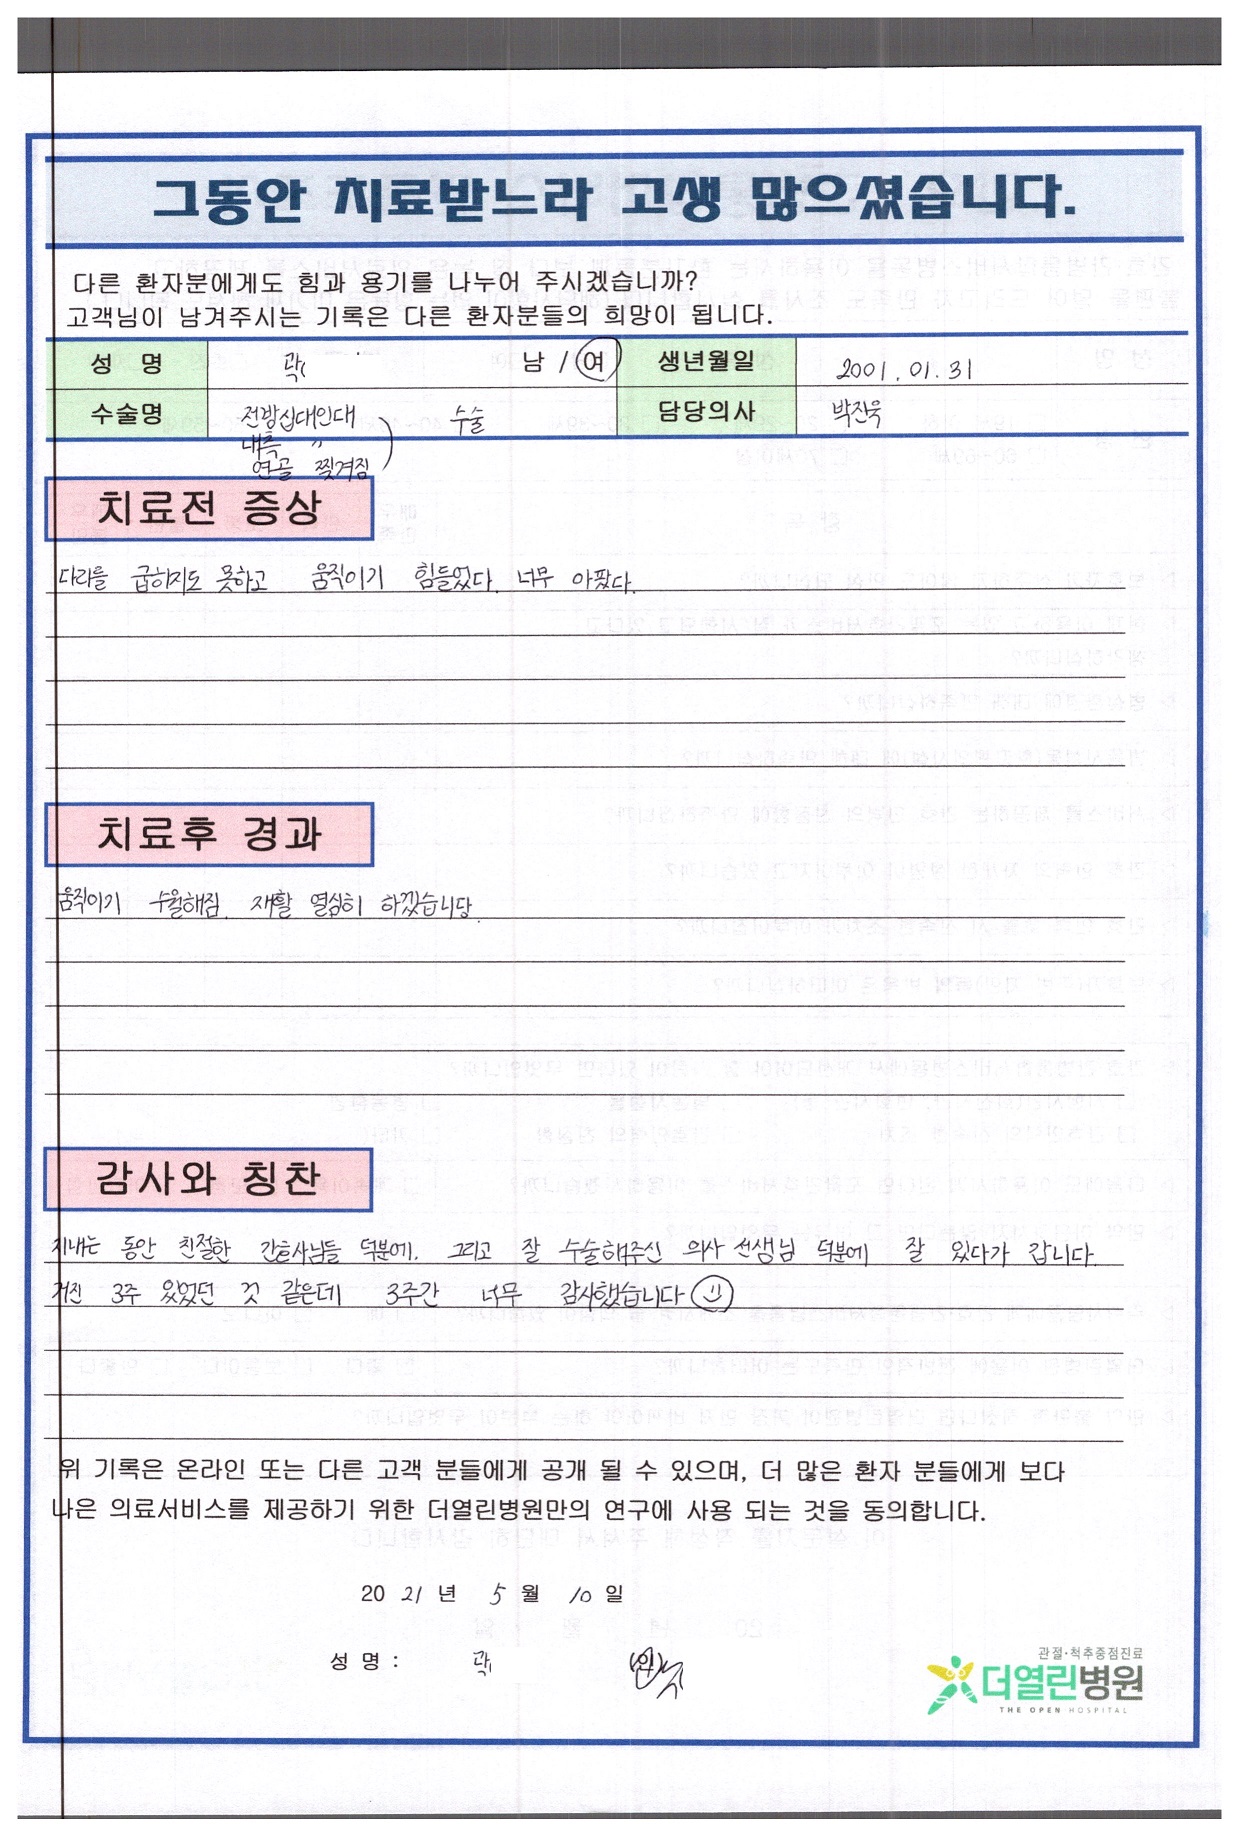 그동안 치료받느라 고생 많으셨습니다.
다른 환자분에게도 힘과 용기를 나누어 주시겠습니까?
고객님이 남겨주시는 기록은 다른 환자분들의 희망이 됩니다.
성 명 곽 남 / 여 생년월일 2001. 01. 31
수술명 전방십대인대 수술 담당의사 박진욱
내측 〃
연골 찢겨짐 )
치료전 증상
다리를 굽히지도 못하고 움직이기 힘들었다. 너무 아팠다.
치료후 경과
움직이기 수월해짐. 재활 열심히 하겠습니당.
감사와 칭찬
지내는 동안 친절한 간호사님들 덕분에. 그리고 잘 수술해주신 의사 선생님 덕분에 잘 있다가 갑니다.
거진 3주 있었던 것 같은데 3주간 너무 감사했습니다
위 기록은 온라인 또는 다른 고객 분들에게 공개 될 수 있으며, 더 많은 환자 분들에게 보다
나은 의료서비스를 제공하기 위한 더열린병원만의 연구에 사용 되는 것을 동의합니다.
20 21 년 5 월 10 일
성 명 : 곽 (인)
관절·척추중점진료
더열린병원
THE OPEN HOSPITAL